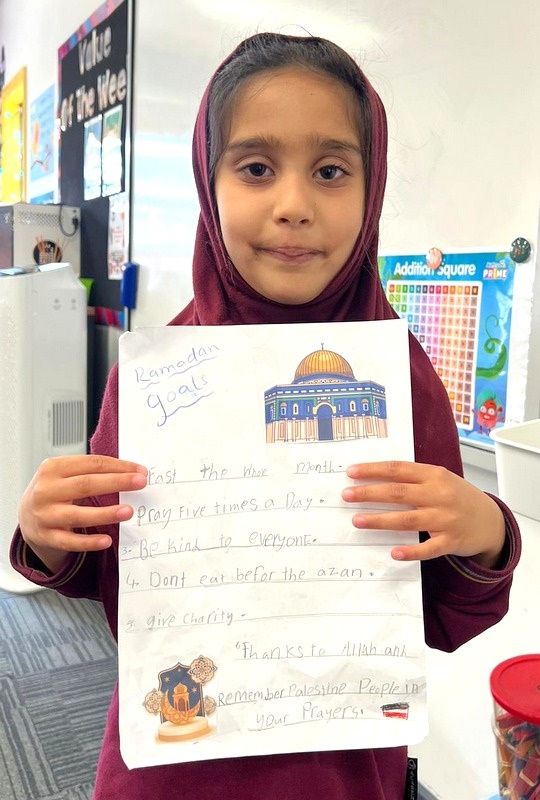 Value
Of The Wee
Addition Square
PRIME
Ramadan
goals
Fast the whole month.
Pray Five times a Day.
3. Be kind to everyone.
4. Dont eat befor the azan.
5. give charity.
"Thanks to Allah and
Remember Palestine People in
your Prayers.